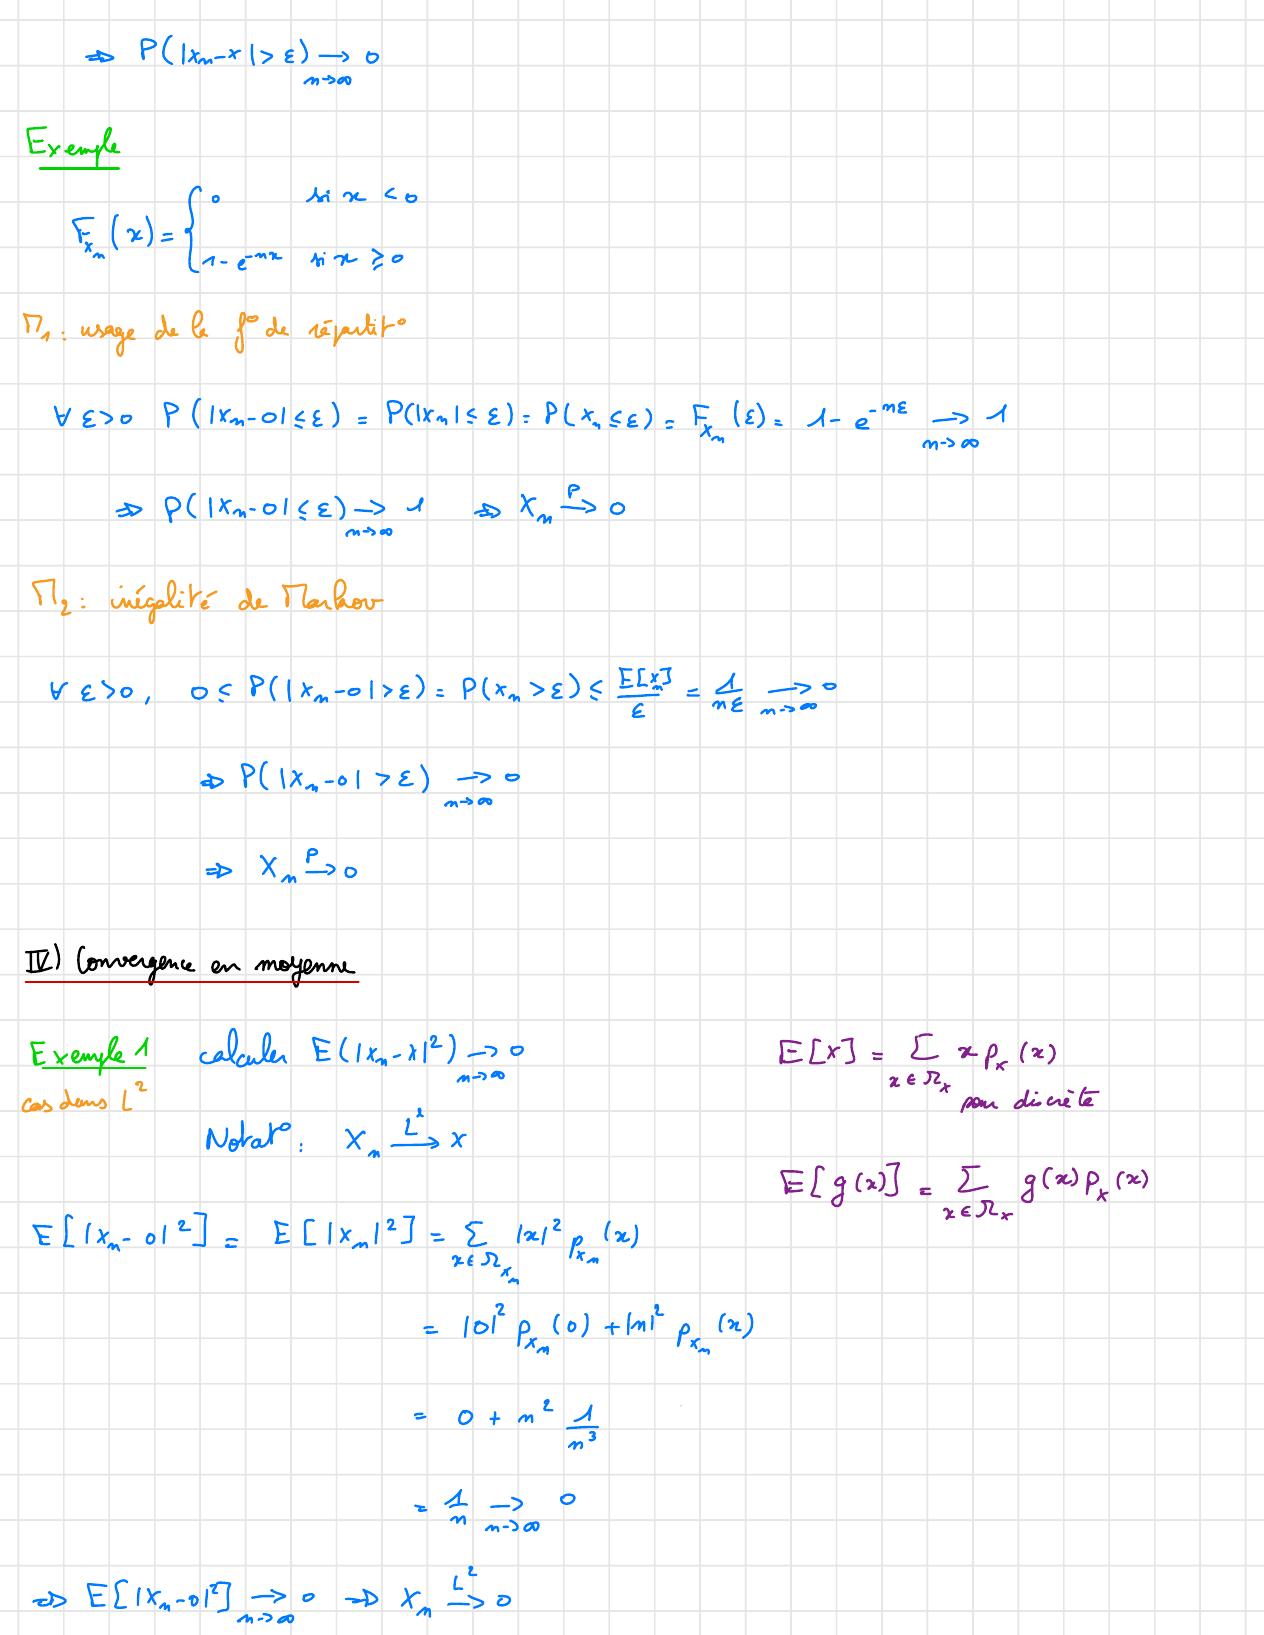 ⇒ P(|Xn-X|>ε) →(n→∞) 0
Exemple
F_Xn(x) = { 0 si x < 0
1-e^{-nx} si x ≥ 0
M1 : usage de la f° de répartit°
∀ ε>0 P(|Xn-0|≤ε) = P(|Xn|≤ε) = P(Xn≤ε) = F_Xn(ε) = 1-e^{-nε} →(n→∞) 1
⇒ P(|Xn-0|≤ε) →(n→∞) 1 ⇒ Xn →^P 0
M2 : inégalité de Markov
∀ ε>0, 0 ≤ P(|Xn-0|>ε) = P(Xn>ε) ≤ E[Xn]/ε = 1/(nε) →(n→∞) 0
⇒ P(|Xn-0|>ε) →(n→∞) 0
⇒ Xn →^P 0
IV) Convergence en moyenne
Exemple 1 calculer E(|Xn-X|²) →(n→∞) 0
cas dans L²
Notat° : Xn →^{L²} X
E[X] = Σ_{x∈Ω_X} x p_X(x)
pour discrète
E[g(x)] = Σ_{x∈Ω_X} g(x) p_X(x)
E[|Xn-0|²] = E[|Xn|²] = Σ_{x∈Ω_Xn} |x|² p_Xn(x)
= |0|² p_Xn(0) + |n|² p_Xn(x)
= 0 + n² 1/n³
= 1/n →(n→∞) 0
⇒ E[|Xn-0|²] →(n→∞) 0 ⇒ Xn →^{L²} 0